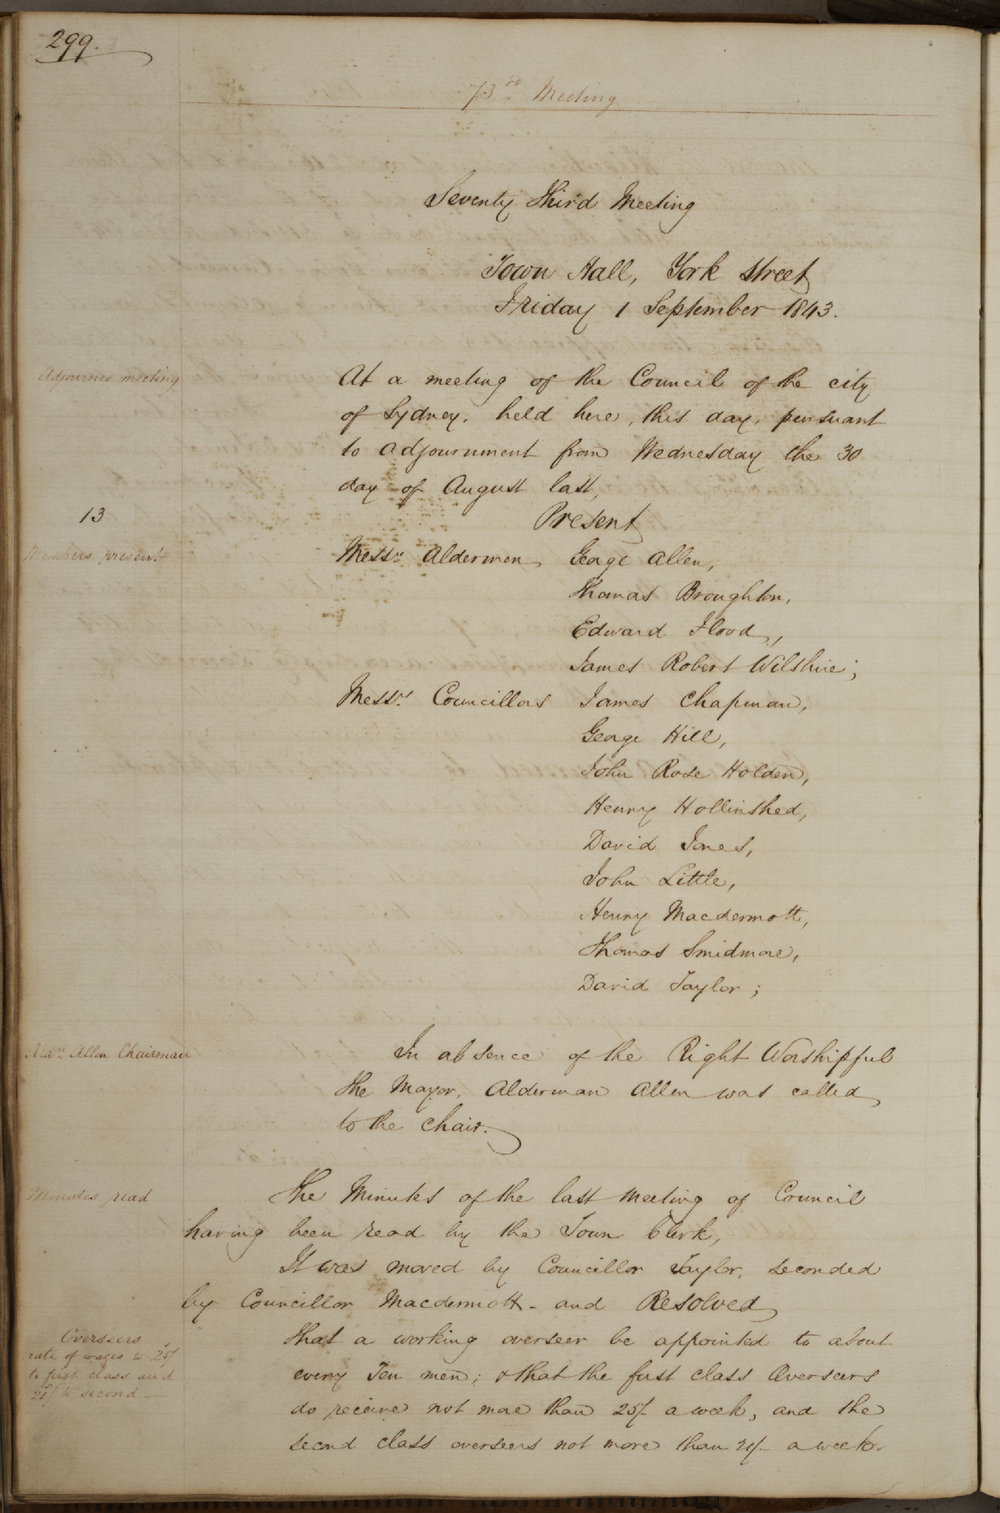 299.
73rd Meeting
Seventy Third Meeting
Town Hall, York Street
Friday 1 September 1843.
Adjourned meeting
At a meeting of the Council of the city
of Sydney, held here, this day, pursuant
to adjournment from Wednesday the 30
day of August last,
13
Present
Members present
Messrs Aldermen George Allen,
Thomas Broughton,
Edward Flood,
James Robert Wilshire;
Messrs Councillors James Chapman,
George Hill,
John Rose Holden,
Henry Hollinshed,
David Jones,
John Little,
Henry Macdermott,
Thomas Smidmore,
David Taylor;
Aldn Allen Chairman
In absence of the Right Worshipful
the Mayor, Alderman Allen was called
to the chair.
Minutes read
The Minutes of the last meeting of Council
having been read by the Town Clerk,
It was moved by Councillor Taylor, seconded
by Councillor Macdermott - and Resolved
Overseers
rate of wages to 25/
to first class and
to second -
that a working overseer be appointed to about
every Ten men; & that the first class Overseers
do receive not more than 25/- a week, and the
second class overseers not more than 21/- a week.